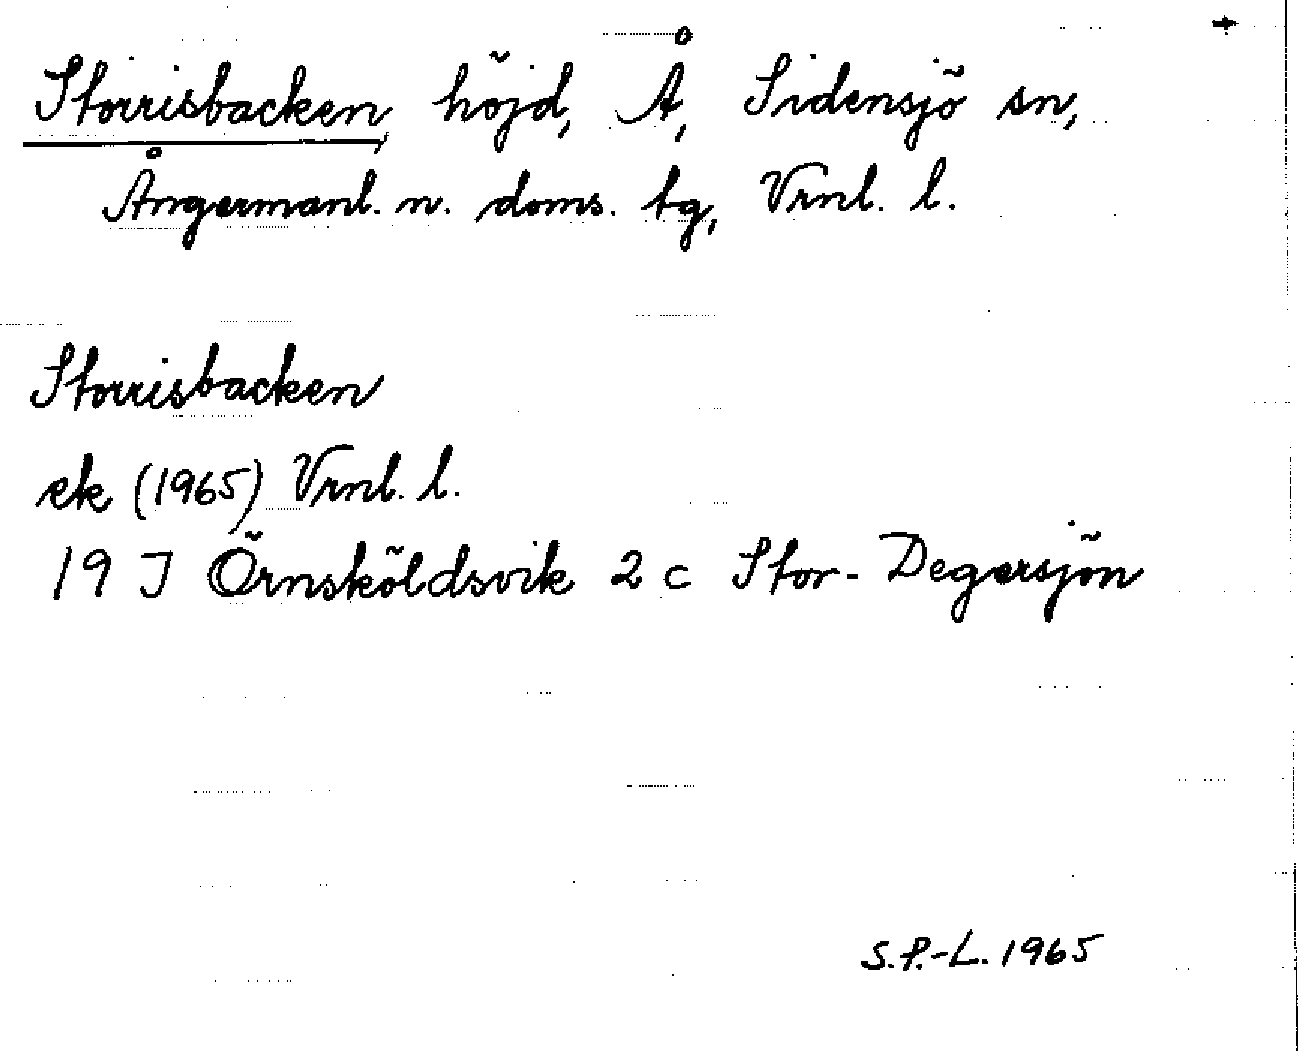 Storrisbacken, höjd, Å, Sidensjö sn,
Ångermanl. n. doms. tg, Vrnl. l.
Storrisbacken
ek (1965) Vrnl. l.
19 J Örnsköldsvik 2 c Stor-Degersjön
S.P.-L. 1965